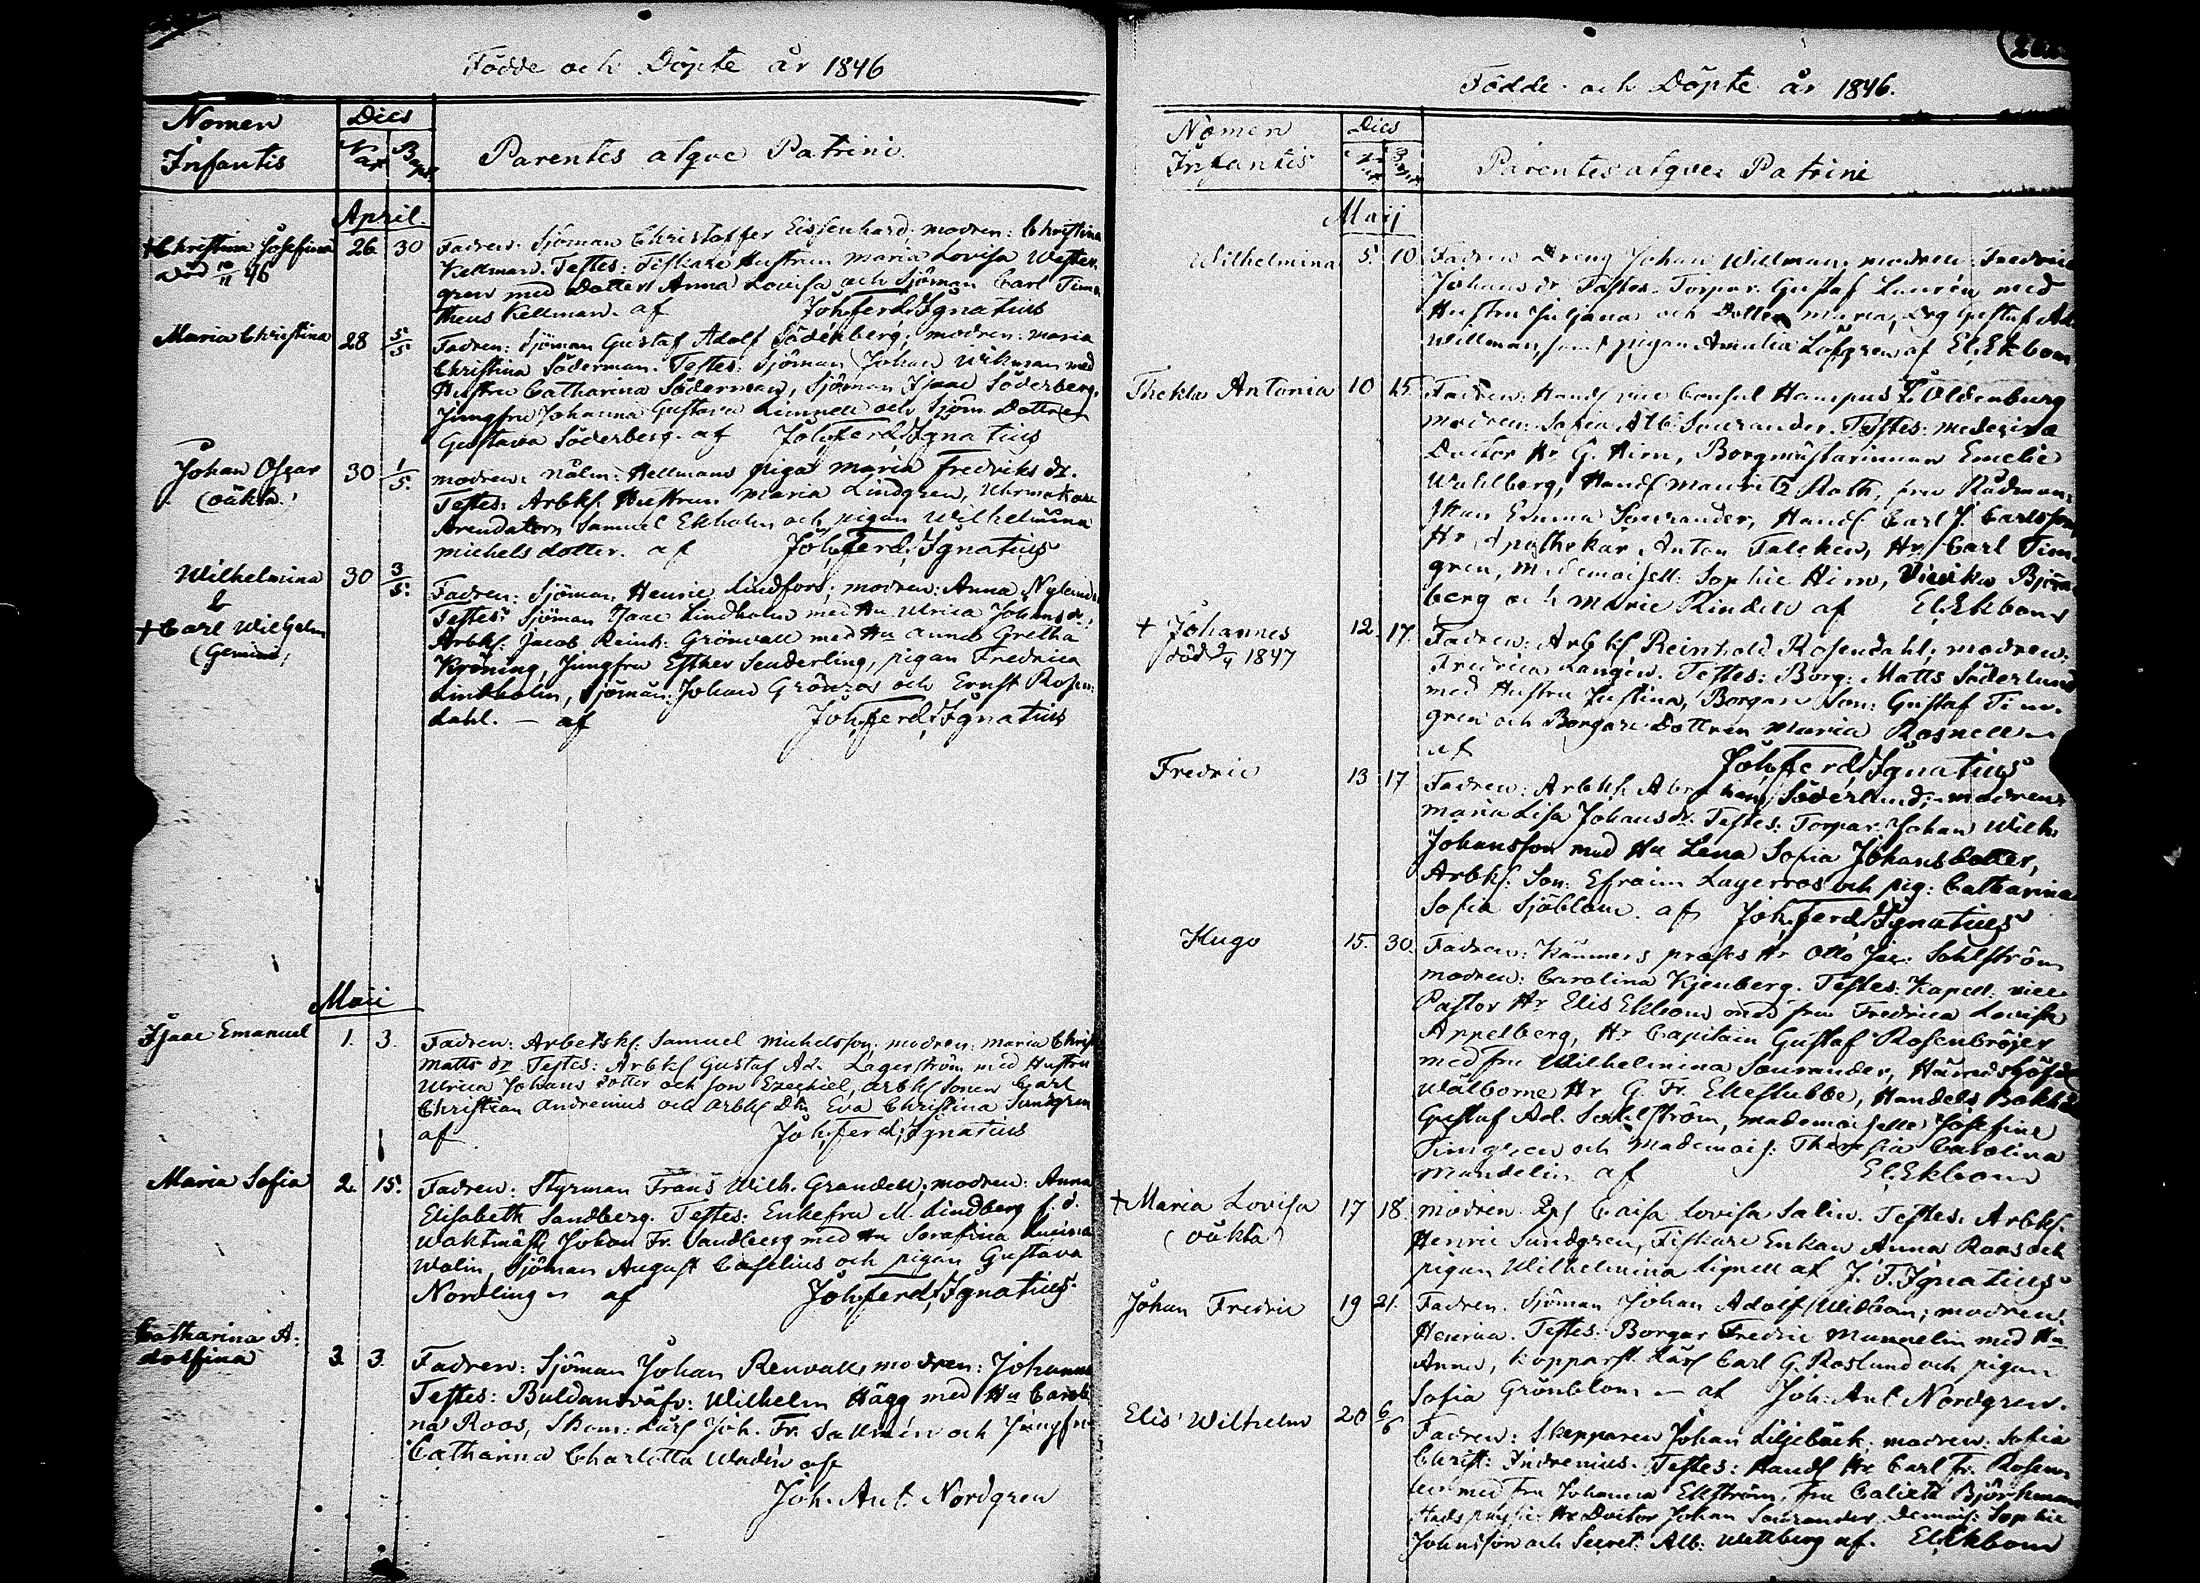 Födde och Döpte år 1846
Nomen Infantis
Dies
Nat Bapt
Parentes atque Patrini.
April.
†Christina Josefina 26 30 Fadren: Sjöman Christoffer Eissenhard; modren: Christina
död 10/11 46 Kellman. Testes: Fiskare Hustrun Maria Lovisa Wester
gren med Dotter Anna Lovisa och Sjöman Carl Timo
theus Kellman. af Joh. Ferd. Ignatius
Maria Christina 28 5/5 Fadren: Sjöman Gustaf Adolf Söderberg; modren: Maria
Christina Söderman. Testes: Sjöman Johan Wikman med
Hustru Catharina Söderman, Sjöman Isaac Söderberg,
Jungfru Johanna Gustava Linnell och Sjöm. Dottren
Gustava Söderberg. af Joh. Ferd. Ignatius
Johan Oscar 30 1/5. modren: Hellmans piga Maria Fredriks dr.
(oäkta.) Testes: Arbks. Hustrun Maria Lindgren, Uhrmakare
Arendatorn Samuel Ekholm och pigan Wilhelmina
Michelsdotter. af Joh. Ferd. Ignatius
Wilhelmina 30 3/5. Fadren: Sjöman Henric Lindfors; modren: Anna Nylund
& Testes: Sjöman Isaac Lindholm med Hu Ulrica Johans dr,
†Carl Wilhelm Arbks. Jacob Reinh. Grönvall med Hu Anna Gretha
(Gemini) Kröning, Jungfru Esther Senderling, pigan Fredrica
Lindholm, Sjöman: Johan Grönroos och Ernst Rosen:
dahl. – af Joh. Ferd. Ignatius
Maii
Isaac Emanuel 1. 3. Fadren: Arbetsk. Samuel Michelsson; modren: Maria Christ
Matts dr Testes: Arbks Gustaf Ad. Lagerström med Hustru
Ulrica Johans dotter och son Ezechiel, arbks sonen Carl
Christian Andrenius och arbks Dtn Eva Christina Sundgren
af Joh. Ferd. Ignatius
Maria Sofia 2. 15. Fadren: Styrman Frans Wilh. Grandell; modren: Anna
Elisabeth Sandberg. Testes: Enkefru M. Lindberg f. d.
Waktmäst. Johan Fr. Sandberg med Hu Serafina Lucina
Walin, Sjöman August Caselius och pigan Gustava
Nordling af Joh. Ferd. Ignatius
Catharina A:
dolfina 3. 3. Fadren: Sjöman Johan Renvall, modren: Johanna
Testes: Buldansväfv: Wilhelm Hägg med Hu Caroli
na Roos, Skom: Lärl Joh. Fr. Sallmén och Jungfru
Catharina Charlotta Wadén af
Joh. Ant. Nordgren
Födde och Döpte år 1846.
Nomen Infantis
Dies
Parentes atque Patrini
Maij
Wilhelmina 5. 10 Fadren Dreng Johan Willman; modren: Fredrica
Johans dr Testes: Torpar. Gustaf Laurén med
Hustru Juliana och Dotter Maria, Drg Gustaf Ad.
Willman, samt pigan Amalia Löfgren af El. Ekbom
Thekla Antonia 10 15 Fadren: Handl vice Consul Hampus F. Oldenburg
modren: Sofia Alb. Sourander. Testes: Medecine
Doctor Hr G. Hirn, Borgmästarinnan Emelie
Wahlberg, Handl Mauritz Roth, fru Rådman:
skan Emma Sourander, Handl. Carl J. Carlsson
Hr Apothekar. Anton Falcken, Hr Carl Tim:
gren, Mademoisell. Sophie Hirn, Viveka Björn:
berg och Marie Rindell af El. Ekbom
† Johannes 12. 17. Fadren: Arbks Reinhold Rosendahl; modren:
död 9/4 1847 Fredrica Langén. Testes: Borg: Matts Söderlund
med Hustru Justina, Borgare Son: Gustaf Tim.
gren och Borgare Dottren Maria Rosnell
af Joh. Ferd. Ignatius
Fredric 13 17 Fadren: Arbks. Abraham Söderlund; modren:
Maria Lisa Johans dr. Testes: Torpar. Johan Wilh.
Johansson med Hu Lena Sofia Johansdotter,
Arbks. Son: Efraim Lagerroos och pig: Catharina
Sofia Sjöblom. af Joh. Ferd. Ignatius
Hugo 15. 30. Fadren: Kämners præses Hr Otto Jac. Sohlström
modren: Carolina Kjenberg. Testes: Kapell. vice
Pastor Hr Elis Ekbom med fru Fredrica Lovisa
Appelberg, Hr Capitain Gustaf Rosenbröijer
med fru Wilhelmina Sourander, Häradshöfd
Wälborne Hr G. Fr. Ekestubbe, Handels Bokh.
Gustaf Ad. Sohlström, Mademoiselle Josefine
Timgren och Mademois: Theresia Carolina
Mundelin af El. Ekbom
†Maria Lovisa 17 18. modren Caisa Lovisa Salin. Testes: Arbks.
(oäkta) Henric Sundgren, Fiskare Enkan Anna Roos och
pigan Wilhelmina Lignell af J. F. Ignatius
Johan Fredric 19 21. Fadren. Sjöman Johan Adolf Widbom; modren:
Henrica. Testes: Borgar Fredric Mundelin med Hu
Anna, Kopparsl. Lärl Carl G. Roslund och pigan
Sofia Grönblom – af Joh. Ant. Nordgren.
Elis Wilhelm 20 6/6 Fadren: Skepparen Johan Liljebäck; modren: Sofia
Christ: Indrenius. Testes: Handl Hr Carl Fr. Rosen
med fru Johanna Ekström, fru Calixta Björkman
Hr Doctor Johan Sourander, Demois: Sophie
Johnsson och Secret: Alb: Wettberg af. El. Ekbom